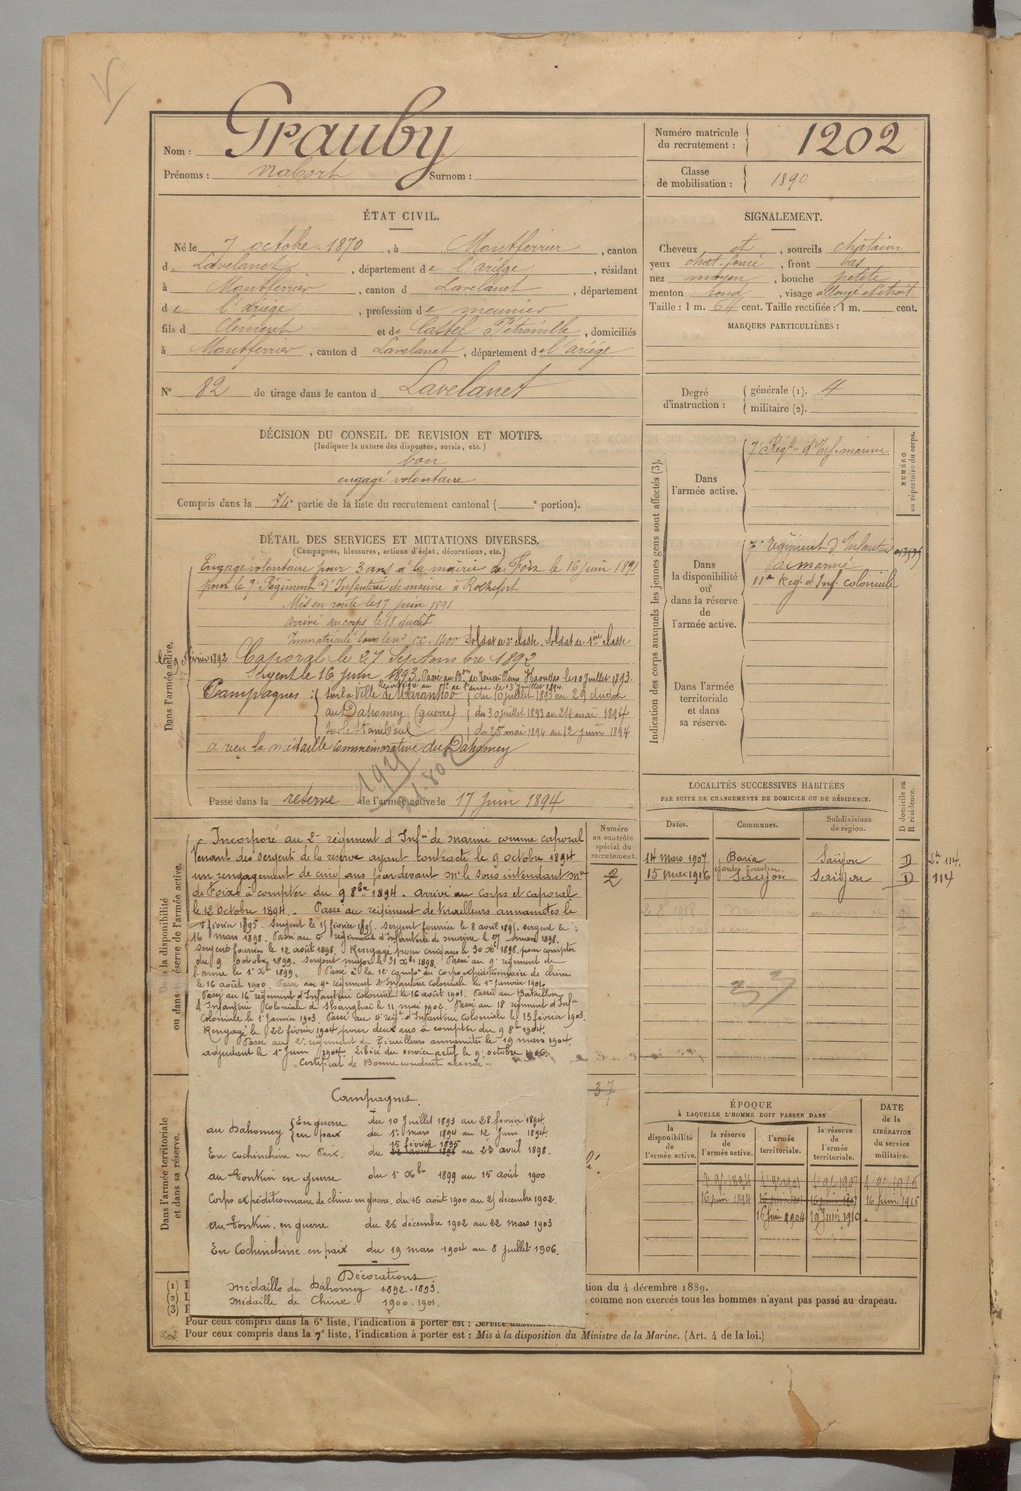 Nom : Grauby
Prénoms : Nabort Surnom :
Numéro matricule du recrutement : 1202
Classe de mobilisation : 1890
ÉTAT CIVIL.
Né le 7 octobre 1870, à Montferrier, canton
d Lavelanet, département de l'ariège, résidant
à Montferrier, canton d Lavelanet, département
de l'ariège, profession de meunier
fils d Clément et de Castel Pétronille, domiciliés
à Montferrier, canton d Lavelanet, département de l'ariège
N° 82 de tirage dans le canton d Lavelanet
SIGNALEMENT.
Cheveux et, sourcils châtains
yeux chat. foncé, front bas
nez moyen, bouche petite
menton rond, visage allongé et étroit
Taille : 1 m. 64 cent. Taille rectifiée : 1 m. cent.
MARQUES PARTICULIÈRES :
Degré d'instruction : générale (1). 4
militaire (2).
DÉCISION DU CONSEIL DE REVISION ET MOTIFS.
(Indiquer la nature des dispenses, sursis, etc.)
bon
engagé volontaire
Compris dans la partie de la liste du recrutement cantonal ( e portion).
DÉTAIL DES SERVICES ET MUTATIONS DIVERSES.
(Campagnes, blessures, actions d'éclat, décorations, etc.)
Dans l'armée active.
Engagé volontaire pour 3 ans à la mairie de Foix le 16 juin 1891
pour le 7e Régiment d'Infanterie de marine à Rochefort
Mis en route le 17 juin 1891
arrivé au corps le 18 dudit
Immatriculé sous le no Soldat de 2e classe. Soldat de 1ère classe
février 1892 Caporal le 27 Septembre 1892
Sergent le 16 juin 1893. Passé au le 10 Juillet 1893.
le 13 juillet 1894.
Campagnes : sur la Ville de Maranhoo du 10 juillet 1893 au 29 dudit
au Dahomey (guerre) du 30 juillet 1893 au 24 mai 1894
sur le Stamboul du 25 mai 1894 au 12 juin 1894
a reçu la médaille commémorative du Dahomey
Passé dans la réserve de l'armée active le 17 juin 1894
Indication des corps auxquels les jeunes gens sont affectés (3).
NUMÉRO au répertoire du corps.
Dans l'armée active. 7e Régt d'Inf. marine
Dans la disponibilité ou dans la réserve de l'armée active.
7e régiment d'Infanterie
de marine
11e Rég. d'Inf. coloniale
Dans l'armée territoriale et dans sa réserve.
Dans la disponibilité ou dans la réserve de l'armée active.
Incorporé au 2e régiment d'Infie de marine comme caporal
Venant des sergents de la réserve ayant contracté le 9 octobre 1894
un rengagement de cinq ans pardevant Mr le sous intendant mre
de Foix à compter du 9 8bre 1894. Arrivé au corps et caporal
le 12 Octobre 1894. Passé au régiment de tirailleurs annamites le
février 1895. Sergent le 15 février 1895. Sergent fourrier le 8 août 1895. Sergent le
16 mars 1898. Passé au régiment d'Infanterie de marine le mars 1898.
Sergent fourrier le 12 août 1898. Rengagé pour cinq ans le 30 Xbre 1898 pour compter
du 9 octobre 1899. Sergent major le 31 Xbre 1898. Passé au 9e régiment de
l'arme le 1er Xbre 1899. Passé à la 12e campe du corps expéditionnaire de chine
le 16 août 1900. Passé au 9e régiment d'Infanterie coloniale le 1er janvier 1901.
Passé au 16e régiment d'Infanterie coloniale le 16 août 1901. Passé au Bataillon
d'Infanterie Coloniale de Shanghaï le 11 mai 1902. Passé au 18e régiment d'Infie
Coloniale le 1er Janvier 1903. Passé au 4e régt d'Infanterie Coloniale le 13 février 1903.
Rengagé le 22 février 1904 pour deux ans à compter du 9 8bre 1904.
Passé au 2e régiment de Tirailleurs annamites le 19 mars 1904
adjudant le 1er Juin 1904. Libéré du service actif le 9 octobre 1906.
Certificat de Bonne conduite accordé
Numéro au contrôle spécial du recrutement.
2
37
LOCALITÉS SUCCESSIVES HABITÉES
PAR SUITE DE CHANGEMENTS DE DOMICILE OU DE RÉSIDENCE.
Dates. Communes. Subdivisions de région. D domicile ou R résidence.
14 mars 1907 Baria Saïgon D Sie 114.
15 mai 1916 Saïgon Saïgon D 114
Dans l'armée territoriale et dans sa réserve.
Campagnes
au Dahomey En guerre du 10 Juillet 1893 au 28 février 1894.
en paix du 1er mars 1894 au 12 Juin 1894.
15 février 1895
En Cochinchine en Paix. du au 23 avril 1898.
au Tonkin en guerre du 1er Xbre 1899 au 15 août 1900
Corps expéditionnaire de chine en guerre, du 16 août 1900 au 25 décembre 1902.
au Tonkin. en guerre du 26 décembre 1902 au 22 mars 1903
En Cochinchine en paix du 19 mars 1904 au 8 juillet 1906.
Décorations
Médaille du Dahomey 1892-1893.
Médaille de Chine 1900-1901.
ÉPOQUE
À LAQUELLE L'HOMME DOIT PASSER DANS
la disponibilité de l'armée active. la réserve de l'armée active. l'armée territoriale. la réserve de l'armée territoriale.
DATE de la LIBÉRATION du service militaire.
16 juin 1894 16 juin 1901 16 juin 1907 16 juin 1916
16 Juin 1904 19 Juin 1910
(1) I
(2) L
(3) P
tion du 4 décembre 1889.
comme non exercés tous les hommes n'ayant pas passé au drapeau.
Pour ceux compris dans la 6e liste, l'indication à porter est : Service
Pour ceux compris dans la 7e liste, l'indication à porter est : Mis à la disposition du Ministre de la Marine. (Art. 4 de la loi.)